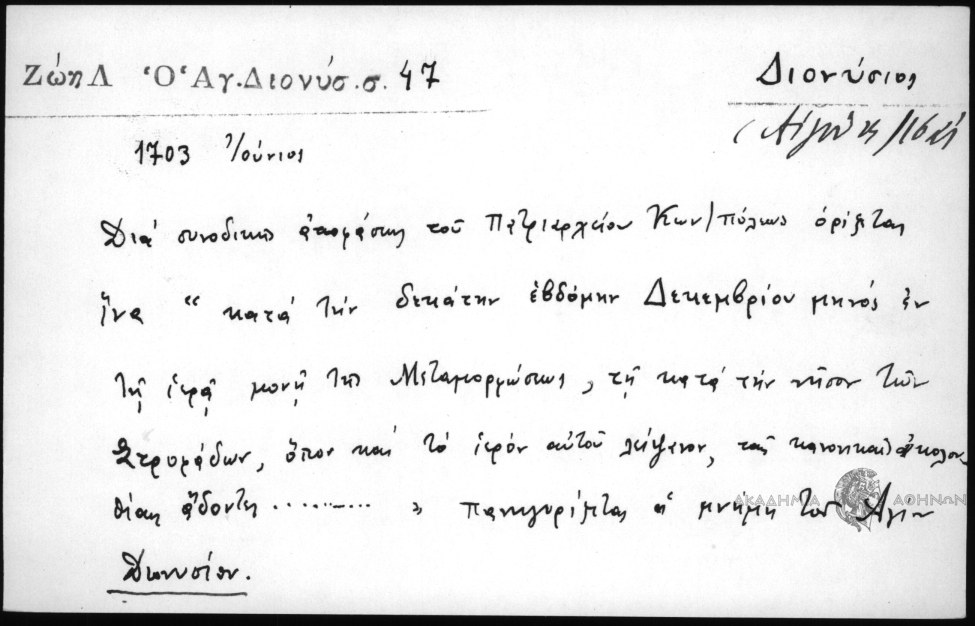 Ζώη Λ Ὁ Ἅγ. Διονύσ. σ. 47
Διονύσιος
1703 Ἰούνιος
Διά συνοδικῆς ἀποφάσεως τοῦ Πατριαρχείου Κων/πόλεως ὁρίζεται
ἵνα " κατά τήν δεκάτην ἑβδόμην Δεκεμβρίου μηνός ἐν
τῇ ἱερᾷ μονῇ τῆς Μεταμορφώσεως, τῇ κατά τήν νῆσον τῶν
Στροφάδων, ὅπου καί τό ἱερόν αὐτοῦ λείψανον, τάς κανονικάς ἀκολου
θίας ᾄδοντες ......... " πανηγυρίζεται ἡ μνήμη τοῦ Ἁγίου
Διονυσίου.
ΑΚΑΔΗΜΙΑ ΑΘΗΝΩΝ